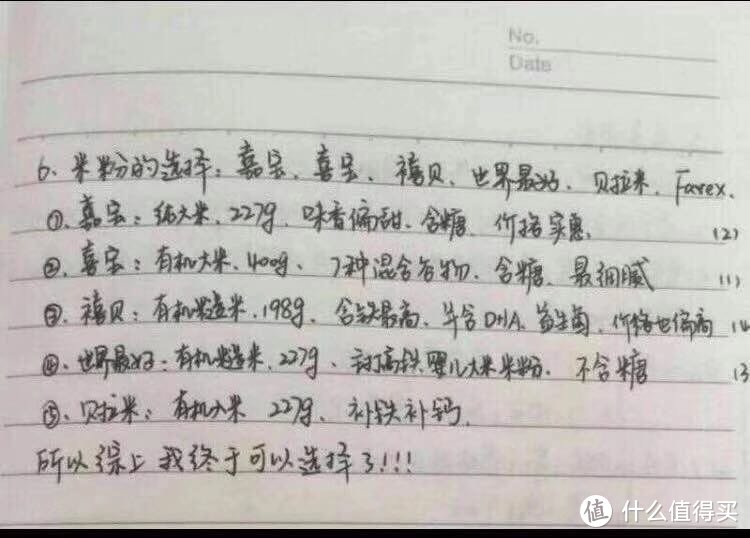 No.
Date
6、米粉的选择：嘉宝、喜宝、禧贝、世界最好、贝拉米、Farex.
①、嘉宝：纯大米、227g、味香偏甜、含糖、价格实惠. (2)
②、喜宝：有机大米、400g、7种混合谷物、含糖、最细腻 (1)
③、禧贝：有机糙米、198g、含铁最高、并含DHA、益生菌、价格也偏高
④、世界最好：有机糙米、227g、高铁婴儿大米米粉、不含糖 (3
⑤、贝拉米：有机大米 227g、补铁补钙.
所以综上 我终于可以选择了!!!
值 什么值得买